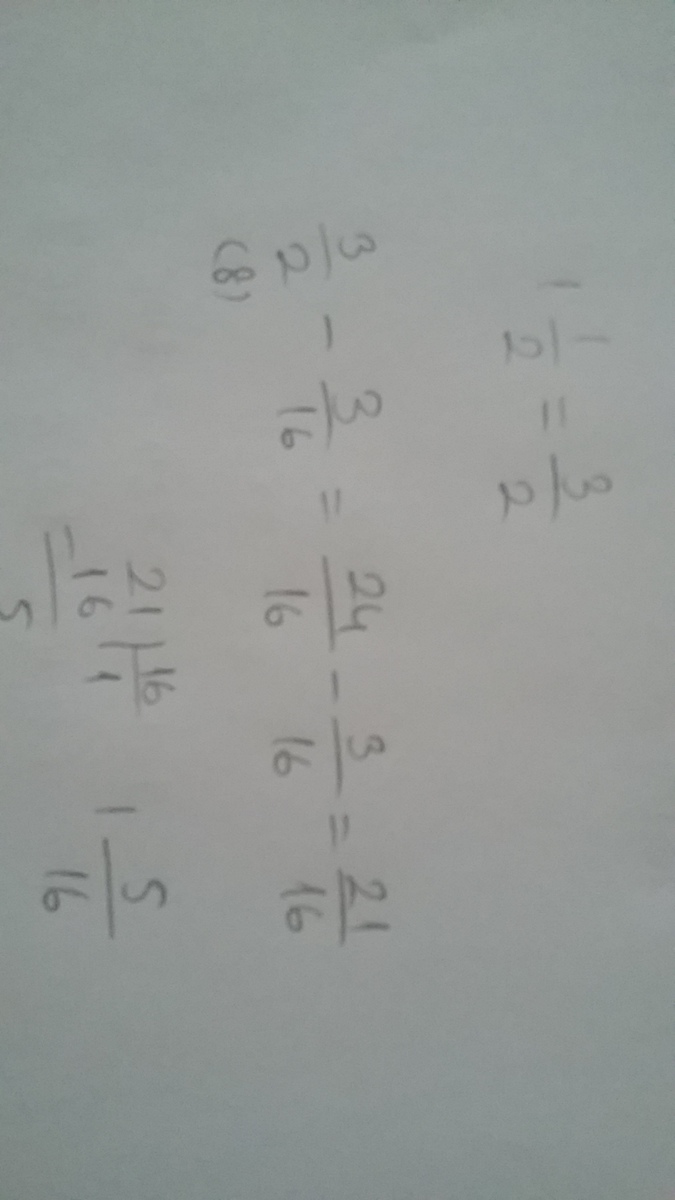 1 1/2 = 3/2
3/2 - 3/16 = 24/16 - 3/16 = 21/16
(8)
21 | 16
-16 | 1
5
1 5/16